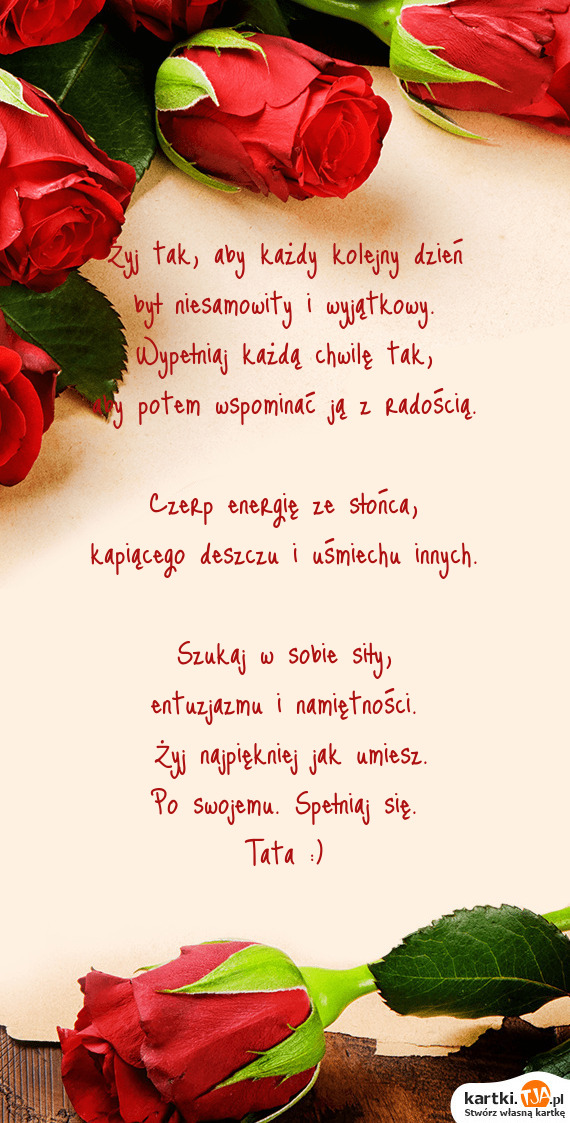 Żyj tak, aby każdy kolejny dzień
był niesamowity i wyjątkowy.
Wypełniaj każdą chwilę tak,
aby potem wspominać ją z radością.
Czerp energię ze słońca,
kapiącego deszczu i uśmiechu innych.
Szukaj w sobie siły,
entuzjazmu i namiętności.
Żyj najpiękniej jak umiesz.
Po swojemu. Spełniaj się.
Tata :)
kartki.TJA.pl
Stwórz własną kartkę